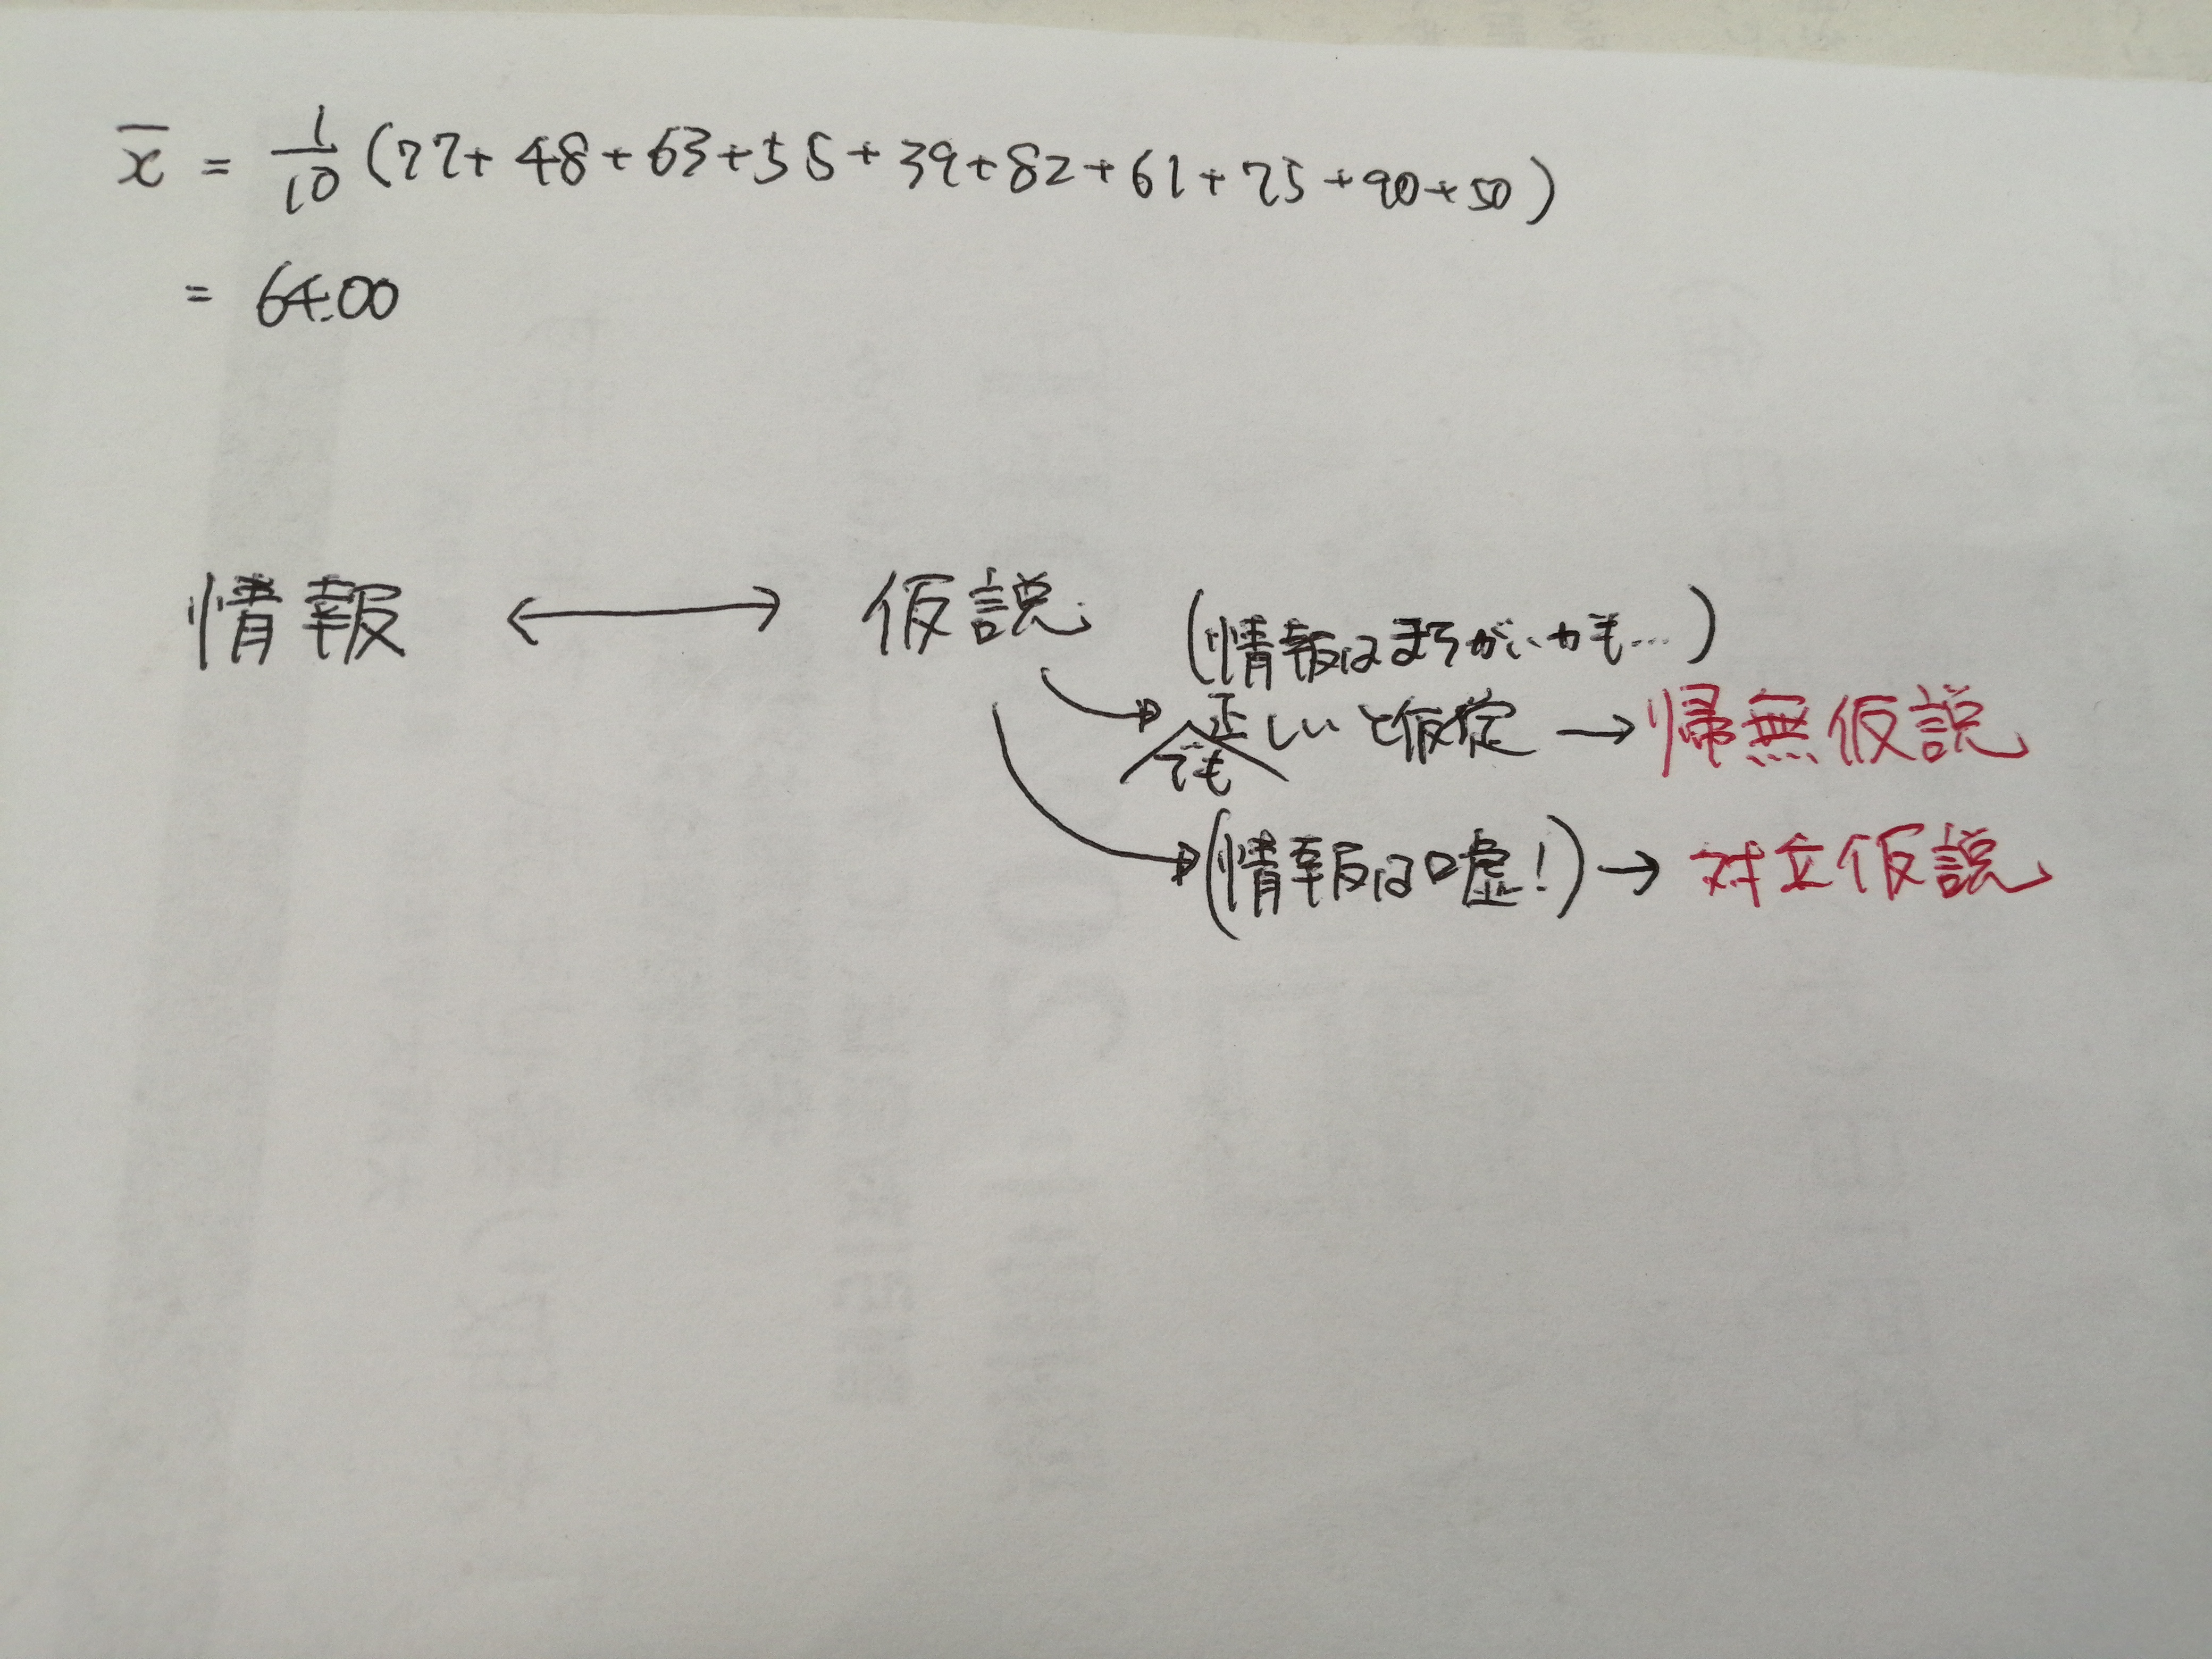 x̄ = 1/10 (77+48+63+55+39+82+61+75+90+50)
= 64.00
情報 ⟷ 仮説 (情報はまちがいかも…)
正しいと仮定 → 帰無仮説
でも
(情報は嘘!) → 対立仮説